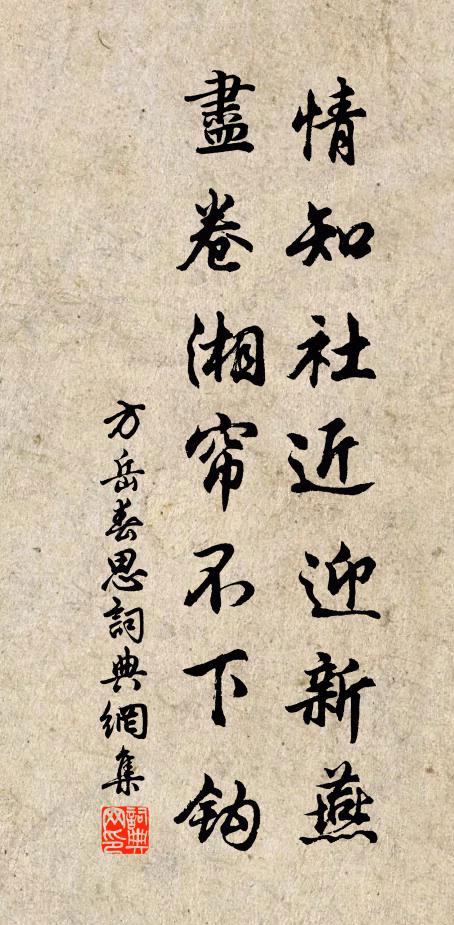 情知社近迎新燕
盡卷湘帘不下鈎
方岳春思詞典網集
詞典網印